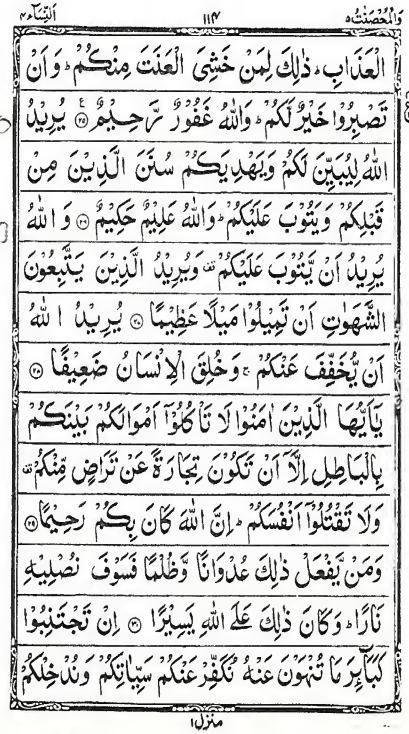 وَالْمُحْصَنٰتُ ٥ ١١٤ اَلنِّسَآء ٤
الْعَذَابِ ؕ ذٰلِكَ لِمَنْ خَشِیَ الْعَنَتَ مِنْكُمْ ؕ وَاَنْ
تَصْبِرُوْا خَیْرٌ لَّكُمْ ؕ وَاللّٰهُ غَفُوْرٌ رَّحِیْمٌ ﴿٢٥﴾ یُرِیْدُ
اللّٰهُ لِیُبَیِّنَ لَكُمْ وَیَهْدِیَكُمْ سُنَنَ الَّذِیْنَ مِنْ
قَبْلِكُمْ وَیَتُوْبَ عَلَیْكُمْ ؕ وَاللّٰهُ عَلِیْمٌ حَكِیْمٌ ﴿٢٦﴾ وَاللّٰهُ
یُرِیْدُ اَنْ یَّتُوْبَ عَلَیْكُمْ ۟ وَیُرِیْدُ الَّذِیْنَ یَتَّبِعُوْنَ
الشَّهَوٰتِ اَنْ تَمِیْلُوْا مَیْلًا عَظِیْمًا ﴿٢٧﴾ یُرِیْدُ اللّٰهُ
اَنْ یُّخَفِّفَ عَنْكُمْ ۚ وَخُلِقَ الْاِنْسَانُ ضَعِیْفًا ﴿٢٨﴾
یٰۤاَیُّهَا الَّذِیْنَ اٰمَنُوْا لَا تَاْكُلُوْۤا اَمْوَالَكُمْ بَیْنَكُمْ
بِالْبَاطِلِ اِلَّاۤ اَنْ تَكُوْنَ تِجَارَةً عَنْ تَرَاضٍ مِّنْكُمْ ۟
وَلَا تَقْتُلُوْۤا اَنْفُسَكُمْ ؕ اِنَّ اللّٰهَ كَانَ بِكُمْ رَحِیْمًا ﴿٢٩﴾
وَمَنْ یَّفْعَلْ ذٰلِكَ عُدْوَانًا وَّظُلْمًا فَسَوْفَ نُصْلِیْهِ
نَارًا ؕ وَكَانَ ذٰلِكَ عَلَی اللّٰهِ یَسِیْرًا ﴿٣٠﴾ اِنْ تَجْتَنِبُوْا
كَبَآىِٕرَ مَا تُنْهَوْنَ عَنْهُ نُكَفِّرْ عَنْكُمْ سَیِّاٰتِكُمْ وَنُدْخِلْكُمْ
منزل ١